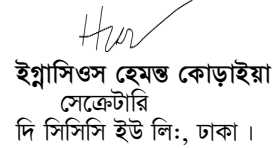 ইগ্নাসিওস হেমন্ত কোড়াইয়া
সেক্রেটারি
দি সিসিসি ইউ লি:, ঢাকা।